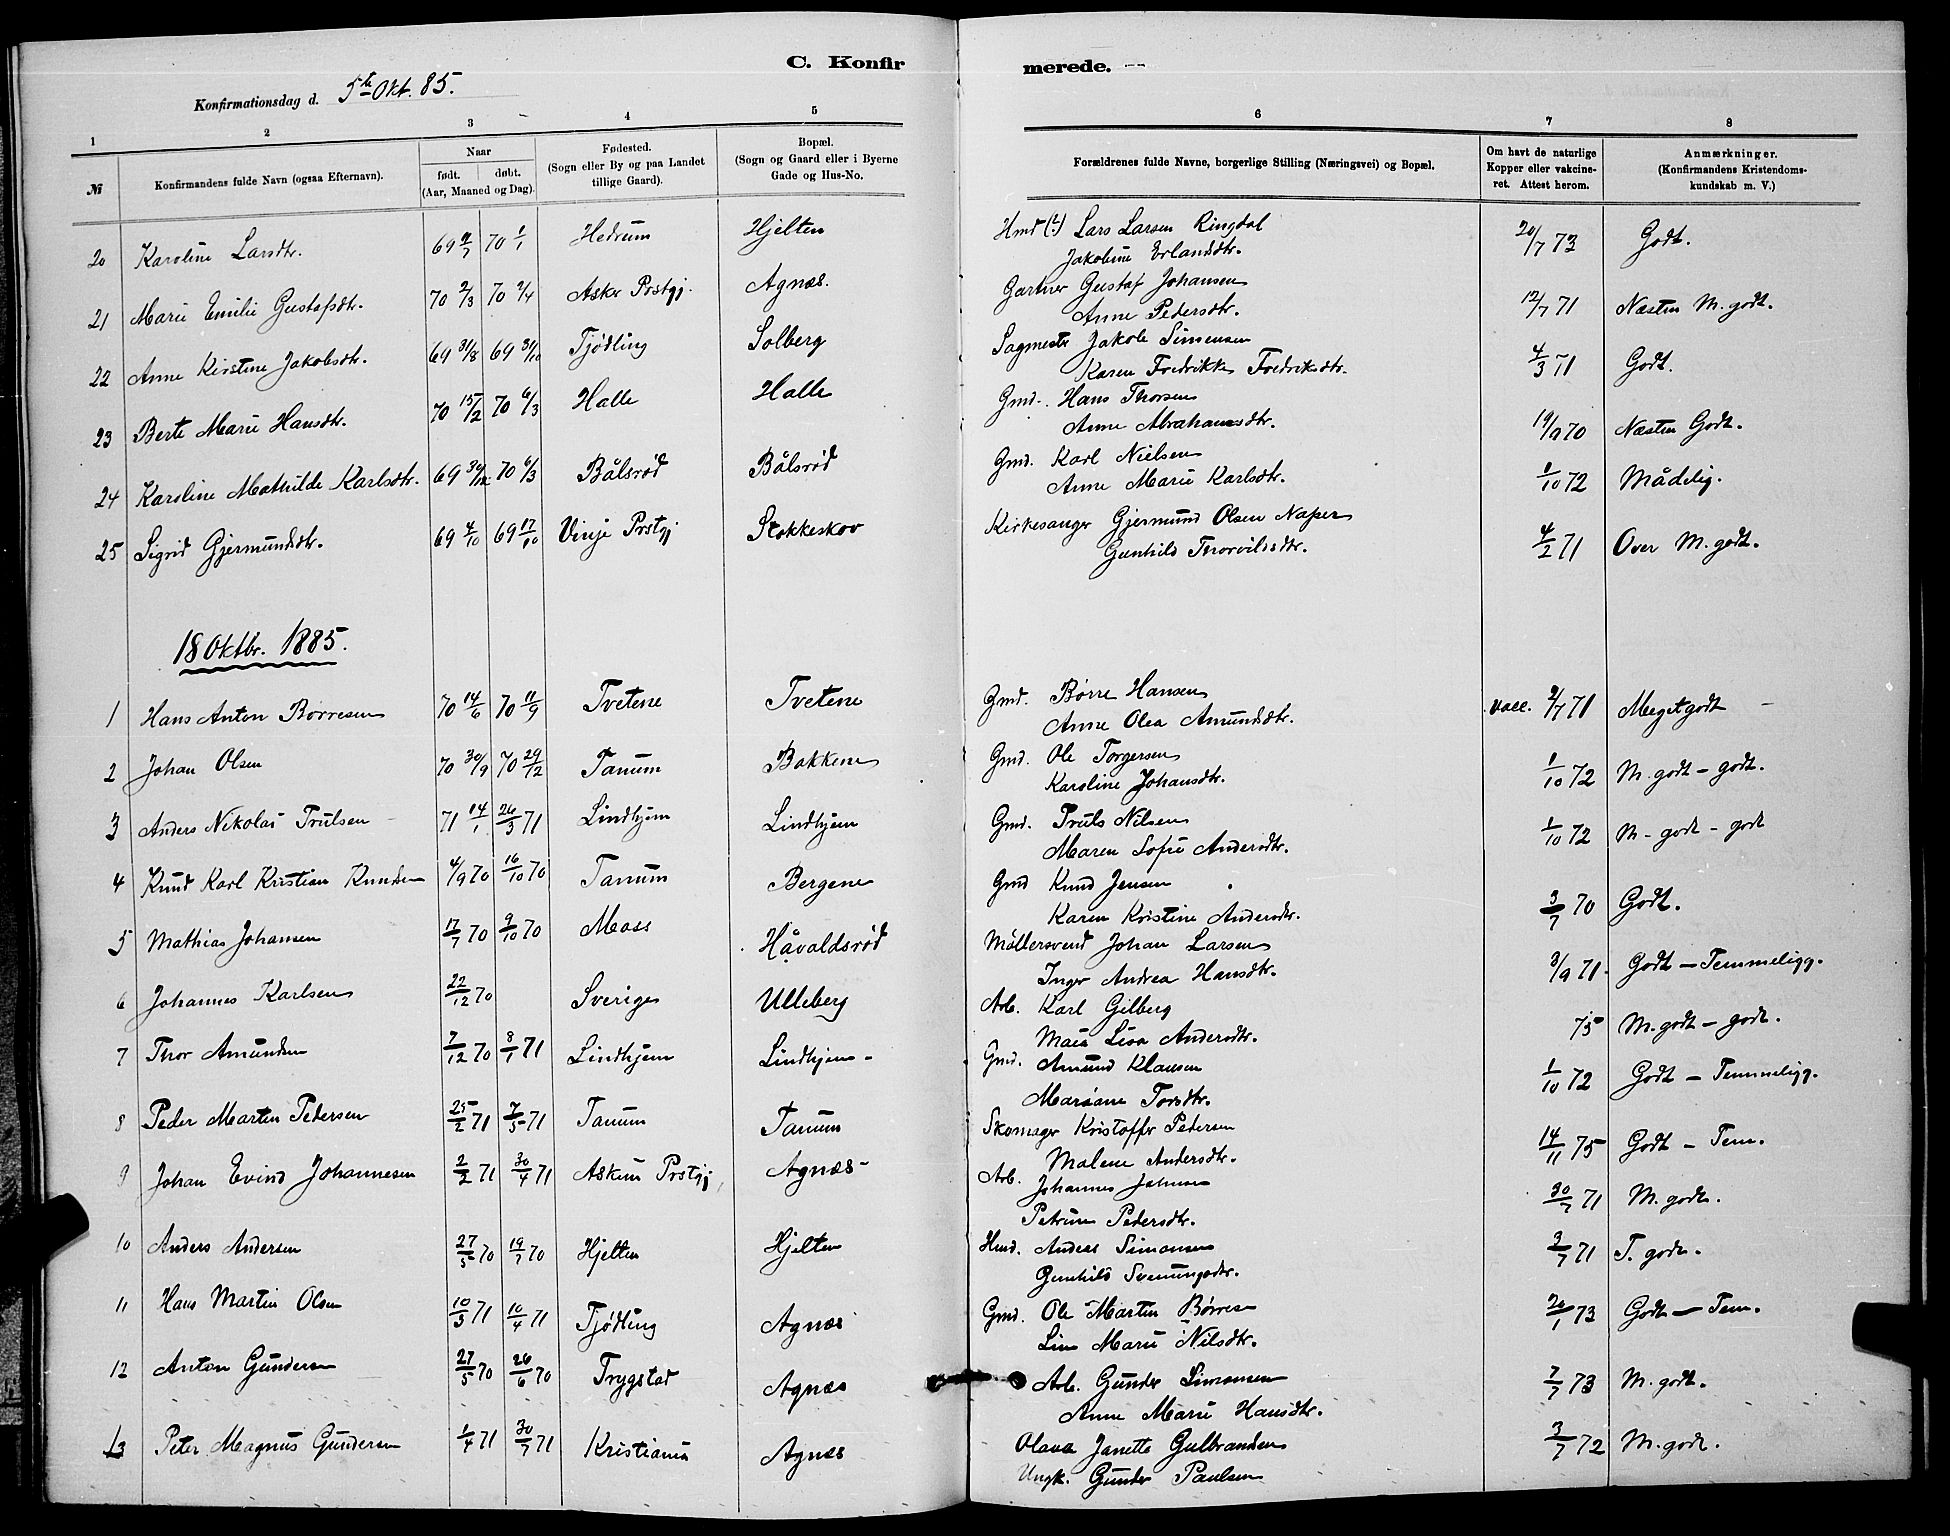 C. Konfirmerede.
Konfirmationsdag d. 5te Okt. 85.
1 2 3 4 5 6 7 8
№ Konfirmandens fulde Navn (ogsaa Efternavn). Naar født. døbt. (Aar, Maaned og Dag). Fødested. (Sogn eller By og paa Landet tillige Gaard). Bopæl. (Sogn og Gaard eller i Byerne Gade og Hus-No. Forældrenes fulde Navne, borgerlige Stilling (Næringsvei) og Bopæl. Om havt de naturlige Kopper eller vakcineret. Attest herom. Anmærkninger. (Konfirmandens Kristendomskundskab m. V.)
20 Karoline Larsdtr. 69 70 1/1 Hedrum Hjelten Hmd Lars Larsen Ringdal 20/7 73 Godt.
Jakobine Erlandsdtr.
21 Marie Emilie Gustafsdtr. 70 2/3 70 2/4 Asker Prstgj. Agnæs. Gartner Gustaf Johansen 12/7 71 Næsten M. godt.
Anne Pedersdtr.
22 Anne Kirstine Jakobsdtr. 69 31/8 69 31/10 Tjødling Solberg Sagmester Jakob Simensen 4/3 71 Godt.
Karen Fredrikke Fredriksdtr.
23 Berte Marie Hansdtr. 70 15/2 70 6/3 Halle Halle Gmd. Hans Thorsen 19/9 70 Næsten Godt.
Anne Abrahamsdtr.
24 Karoline Mathilde Karlsdtr. 69 30/12 70 6/3 Bålsrød Bålsrød Gmd. Karl Nielsen 1/10 72 Mådelig.
Anne Marie Karlsdtr.
25 Sigrid Gjermundsdtr. 69 4/10 69 17/10 Vinje Prstgj Stokkeskov Kirkesanger Gjermund Olsen Naper 4/2 71 Over M. godt.
Gunhild Thorvilsdtr.
18 Oktbr. 1885.
1 Hans Anton Børresen 70 14/6 70 11/9 Tvetene Tvetene Gmd. Børre Hansen vacc. 2/7 71 Meget godt
Anne Olea Amundsdtr.
2 Johan Olsen 70 30/9 70 29/12 Tanum Bakkene Gmd. Ole Torgersen 1/10 72 M. godt - godt.
Karoline Johansdtr.
3 Anders Nikolai Trulsen 71 14/1 26/3 71 Lindhjem Lindhjem Gmd. Truls Nilsen 1/10 72 M. godt - godt
Maren Sofie Andersdtr.
4 Knud Karl Kristian Knudsen 4/9 70 16/10 70 Tanum Bergene Gmd Knud Jensen 3/7 70 Godt.
Karen Kristine Andersdtr.
5 Mathias Johansen 17/7 70 9/10 70 Moss Håvaldsrød Møllersvend Johan Larsen 3/9 71 Godt - Temmeligg.
Inger Andrea Hansdtr.
6 Johannes Karlsen 22/12 70 Sverige Ulleberg Arb. Karl Gilberg 75 M. godt - godt.
Maia Lisa Andersdtr.
7 Thor Amundsen 7/12 70 8/1 71 Lindhjem Lindhjem Gmd. Amund Klausen 1/10 72 Godt - Temmeligg.
Mariane Torsdtr.
8 Peder Martin Pedersen 25/2 71 7/5 71 Tanum Tanum Skomager Kristoffer Petersen 14/11 75 Godt - Tem.
Malene Andersdtr.
9 Johan Evind Johannesen 2/2 71 30/4 71 Askim Prstgj Agnæs Arb. Johannes Johnsen 30/7 71 M. godt.
Petrine Pedersdtr.
10 Anders Andersen 27/5 70 19/7 70 Hjelten Hjelten Hmd. Andeas Simonsen 3/7 71 T. godt.
Gunhild Svenungsdtr.
11 Hans Martin Olsen 10/3 71 10/4 71 Tjødling Agnæs Gmd. Ole Martin Børresen 20/1 73 Godt - Tem.
Line Marie Nilsdtr.
12 Anton Gundersen 27/5 70 26/6 70 Trygstad Agnæs Arb. Gunder Simonsen 7/7 73 M. godt.
Anne Marie Hansdtr.
13 Peter Magnus Gundersen 1/4 71 30/7 71 Kristiania Agnæs Olava Janette Gulbrandsen 3/7 72 M. godt.
Ungk. Gunder Paulsen